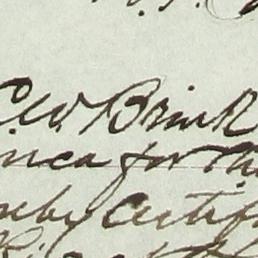 C.W. Brink
rica for th
reby Certif